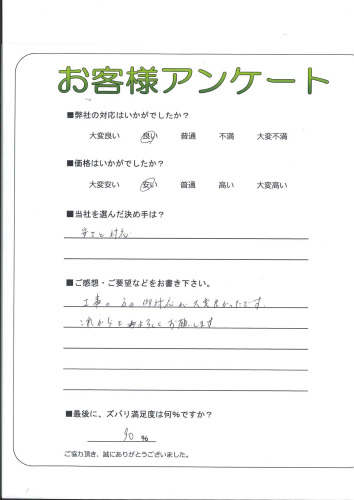 お客様アンケート
■弊社の対応はいかがでしたか？
大変良い 良い 普通 不満 大変不満
■価格はいかがでしたか？
大変安い 安い 普通 高い 大変高い
■当社を選んだ決め手は？
安さと対応
■ご感想・ご要望などをお書き下さい。
工事の方の対応が大変良かったです。
これからもよろしくお願いします
■最後に、ズバリ満足度は何%ですか？
90 %
ご協力頂き、誠にありがとうございました。